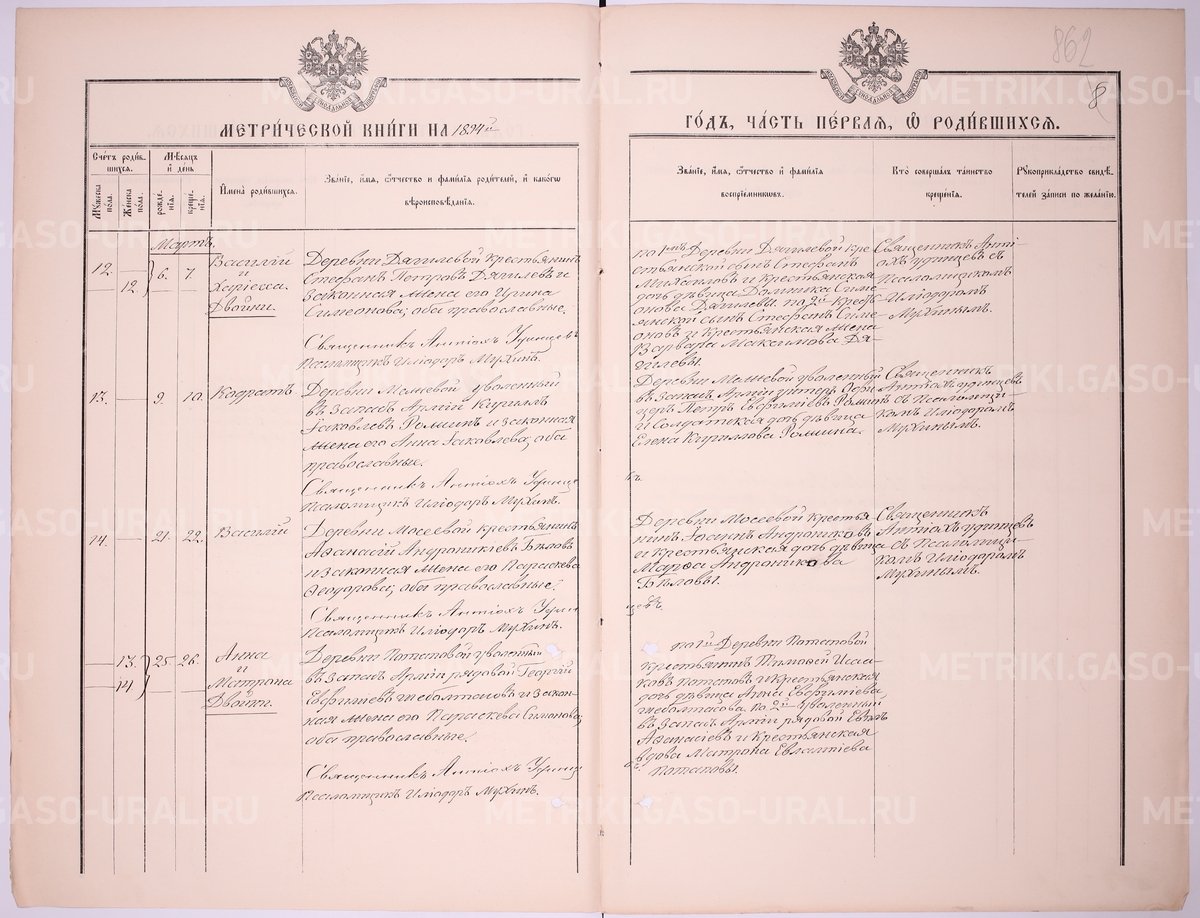 862
8
МЕТРИЧЕСКОЙ КНИГИ НА 1894й
ГОДЪ, ЧАСТЬ ПЕРВАЯ, Ѡ РОДИВШИХСЯ.
Счетъ родив-
шихся.
Мужеска пола.
Женска пола.
Мѣсяцъ и день
рожде-
нія.
креще-
нія.
Имена родившихся.
Званіе, имя, ѿчество и фамилія родителей, и какогѡ
вѣроисповѣданія.
Званіе, имя, ѿчество и фамилія
воспріемниковъ.
Кто совершалъ таинство
крещенія.
Рукоприкладство свидѣ-
телей записи по желанію.
Мартъ.
12. 12. 6. 7.
Василій
и
Хариесса.
Двойни.
Деревни Дягилевой крестьянинъ
Стефанъ Петровъ Дягилевъ и
законная жена его Ирина
Симеонова; оба православные.
Священникъ Антіохъ Удинцевъ
Псаломщикъ Иліодоръ Мухинъ.
по 1мъ Деревни Дягилевой кре
стьянской сынъ Стефанъ
Михайловъ и крестьянская
дочь дѣвица Домника Симе
онова Дягилевы. по 2й крест
янской сынъ Стефанъ Симе
оновъ и крестьянская жена
Варвара Максимова Дя-
гилевы.
Священникъ Анті-
охъ Удинцевъ съ
Псаломщикомъ
Иліодоромъ
Мухинымъ.
13. 9. 10.
Кодратъ
Деревни уволенный
въ запасъ Арміи Кириллъ
Іаковлевъ Ромшинъ и законная
жена его Анна Іаковлева; оба
православные.
Священникъ Антіохъ Удинце
Псаломщикъ Иліодоръ Мухинъ.
въ.
Деревни уволенный
въ запасъ Арміи унтеръ Офи
церъ Петръ Евфиміевъ
и солдатская дочь дѣвица
Елена Кириллова
Священникъ
Антіохъ Удинцевъ
съ Псаломщи-
комъ Иліодоромъ
Мухинымъ.
14. 21. 22.
Василій
Деревни Мосеевой крестьянинъ
Афанасій Андроникіевъ Бѣловъ
и законная жена его Параскева
Ѳеодорова; оба православные.
Священникъ Антіохъ Удин
Псаломщикъ Иліодоръ Мухинъ.
цевъ.
Деревни Мосеевой крестья
нинъ Іоаннъ Андрониковъ
и крестьянская дочь дѣвица
Марѳа Андроникова
Бѣловы.
Священникъ
Антіохъ Удинцевъ
съ Псаломщи-
комъ Иліодоромъ
Мухинымъ.
13. 14. 25. 26.
Анна
и
Матрона
Двойни.
Деревни Потаповой уволенный
въ запасъ Арміи рядовой Георгій
Евфиміевъ и закон-
ная жена его Параскева Симонова;
оба православные.
Священникъ Антіохъ Удинце
Псаломщикъ Иліодоръ Мухинъ.
въ.
по 1й Деревни Потаповой
крестьянинъ Тимофей Исаа
ковъ Потаповъ и крестьянская
дочь дѣвица Анна Евфиміева
по 2й уволенный
въ запасъ Арміи рядовой
Афанасіевъ и крестьянская
вдова Матрона Евлампіева
Потаповы.
METRIKI.GASO-URAL.RU